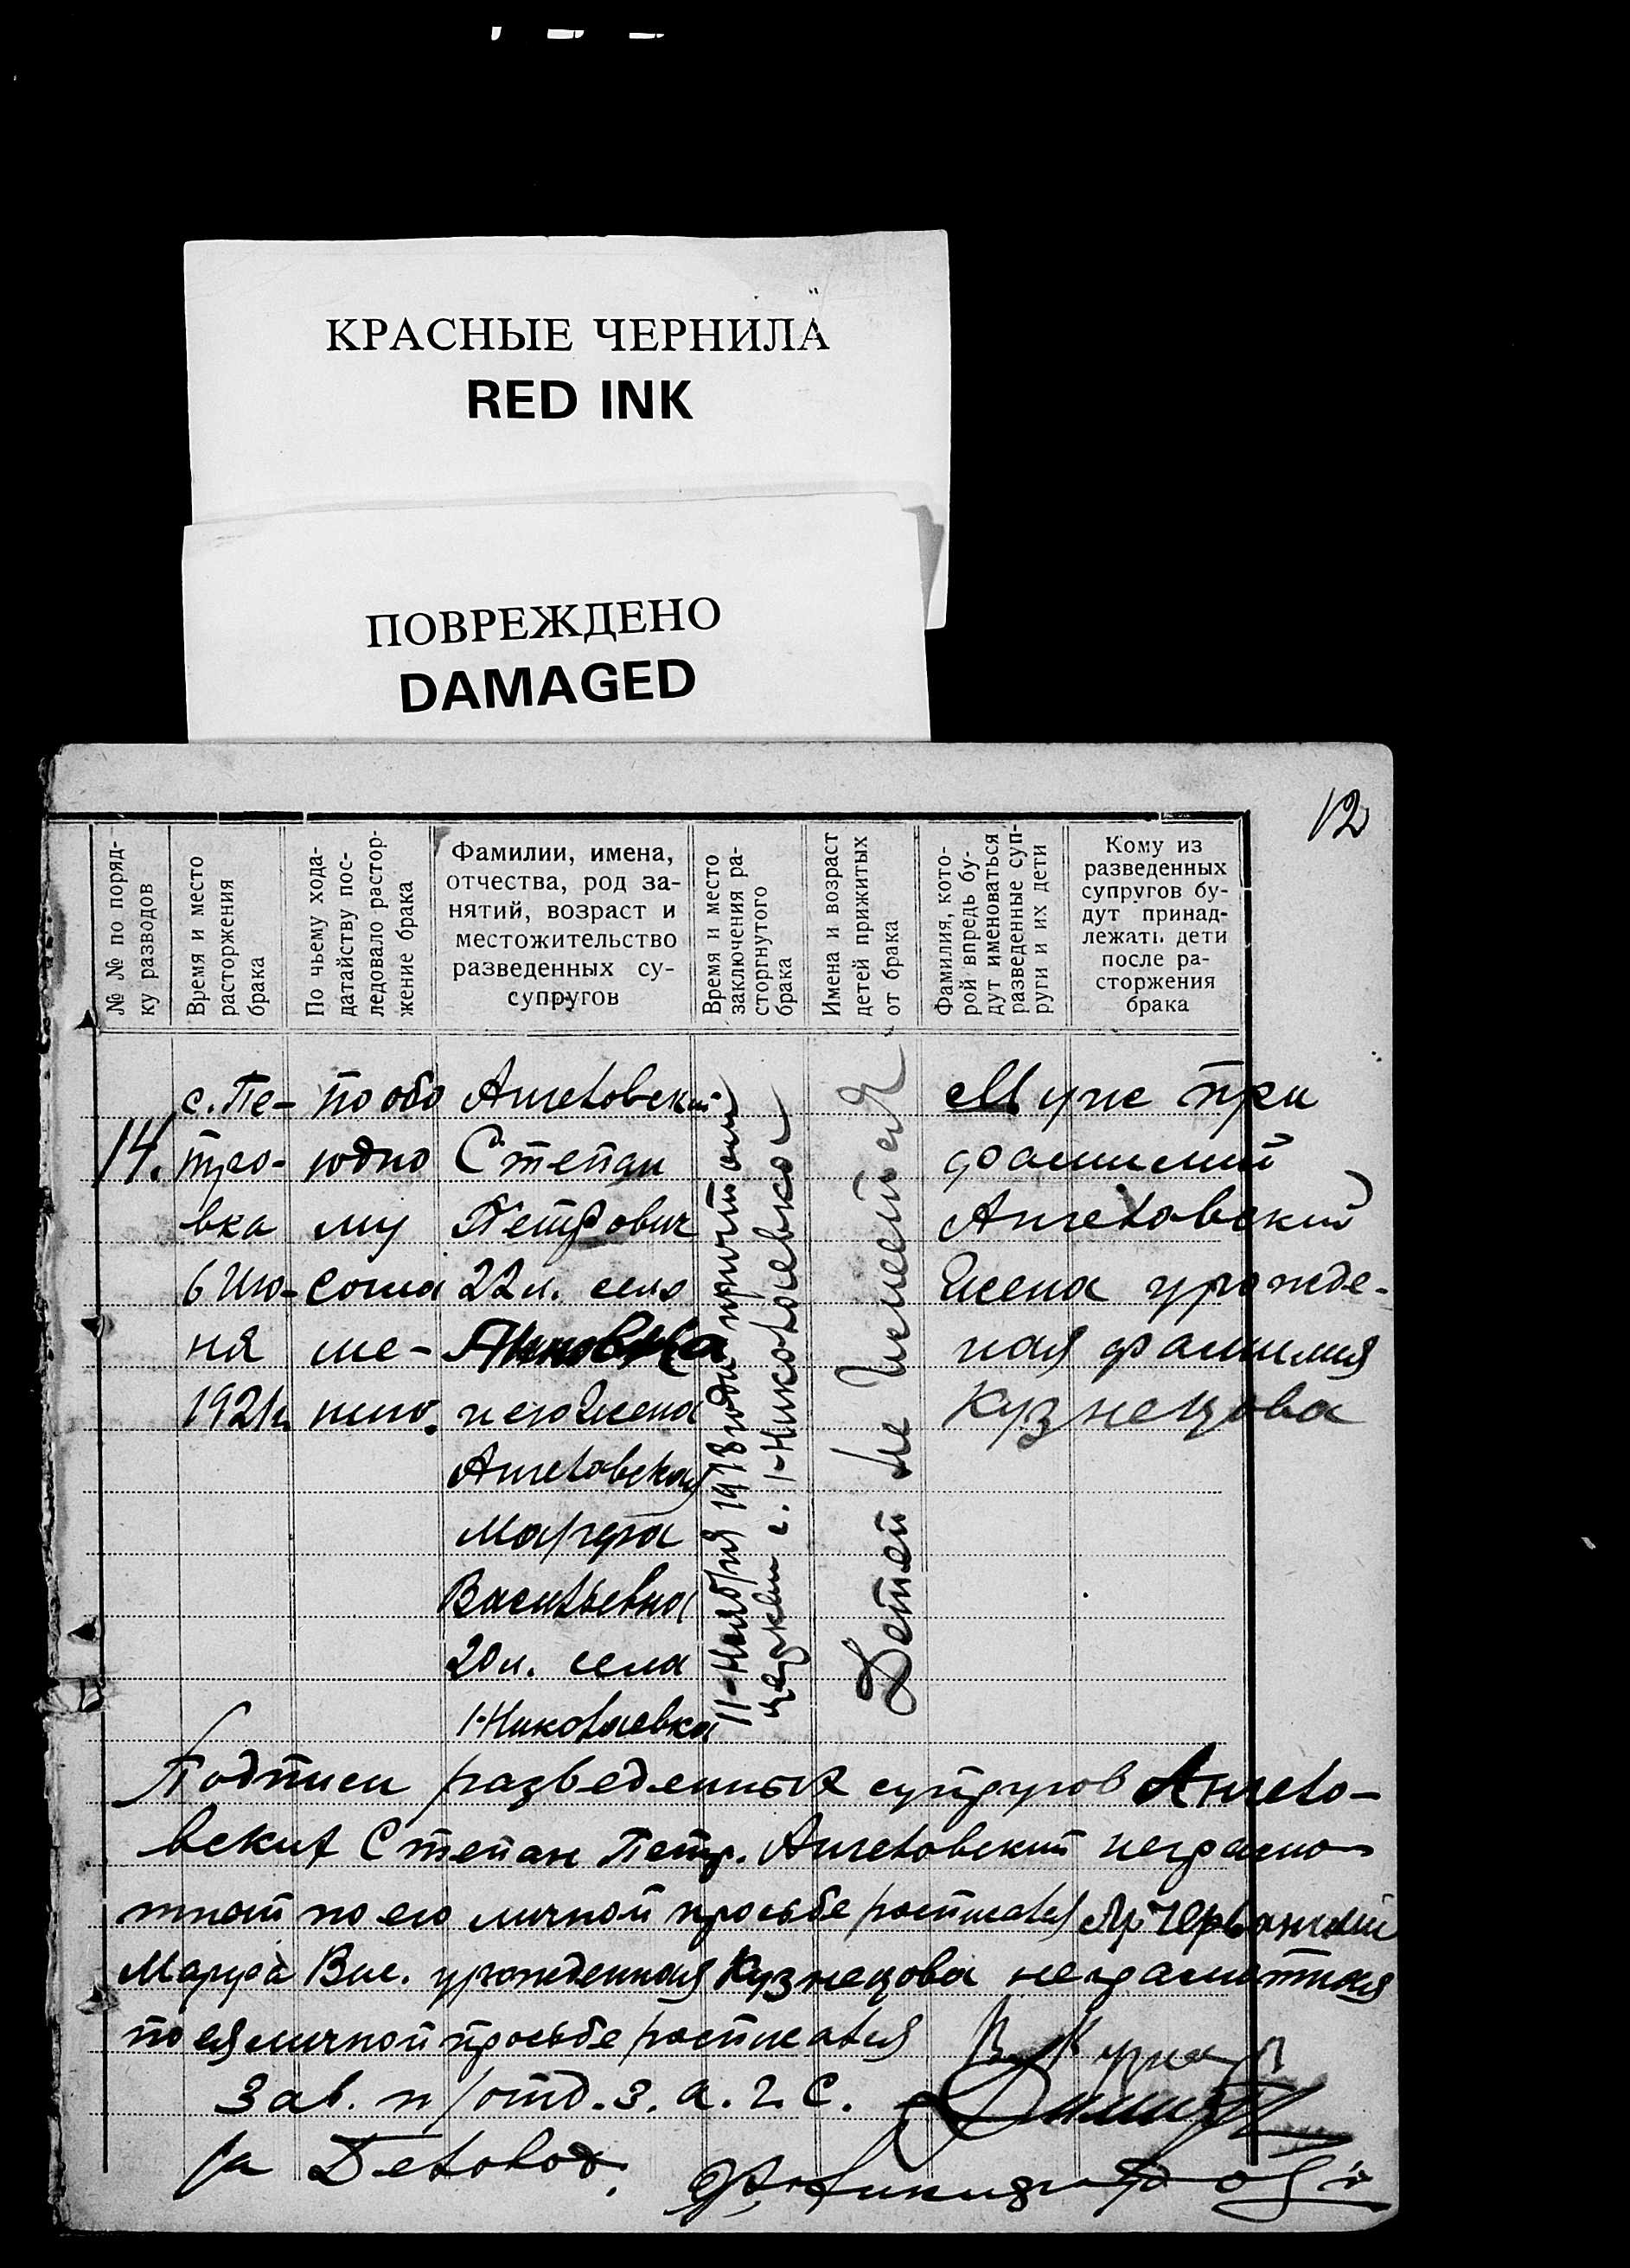 КРАСНЫЕ ЧЕРНИЛА
RED INK
ПОВРЕЖДЕНО
DAMAGED
12
№ № по поряд-
ку разводов
Время и место
расторжения
брака
По чьему хода-
датайству пос-
ледовало растор-
жение брака
Фамилии, имена,
отчества, род за-
нятий, возраст и
местожительство
разведенных су-
супругов
Время и место
заключения ра-
сторгнутого
брака
Имена и возраст
детей прижитых
от брака
Фамилия, кото-
рой впредь бу-
дут именоваться
разведенные суп-
руги и их дети
Кому из
разведенных
супругов бу-
дут принад-
лежать дети
после ра-
сторжения
брака
14.
с. Пе-
тро-
вка
6 Ию-
ня
1921 г.
по обо
юдно
му
согла
ше-
нию.
Анге­ловский
Степан
Петрович
22 л. село
и его жена
Ангеловская
Марфа
Васильевна
20 л. села
1-Николаевка
11-Ноября 1918 года причт
церкви с. 1-Николаевка
Детей не имеется
Муж при
фамилий
Ангеловский
Жена урожде-
ная фамилия
Кузнецова
Подписи разведенных супругов Ангело-
вских Степан Петр. Ангеловский неграмо
тной по его личной просьбе росписался
Марфа Вас. урожденная Кузнецова неграмотная
по ея личной просьбе росписался
Зав. п/отд. З. А. Г. С.
Делопод.